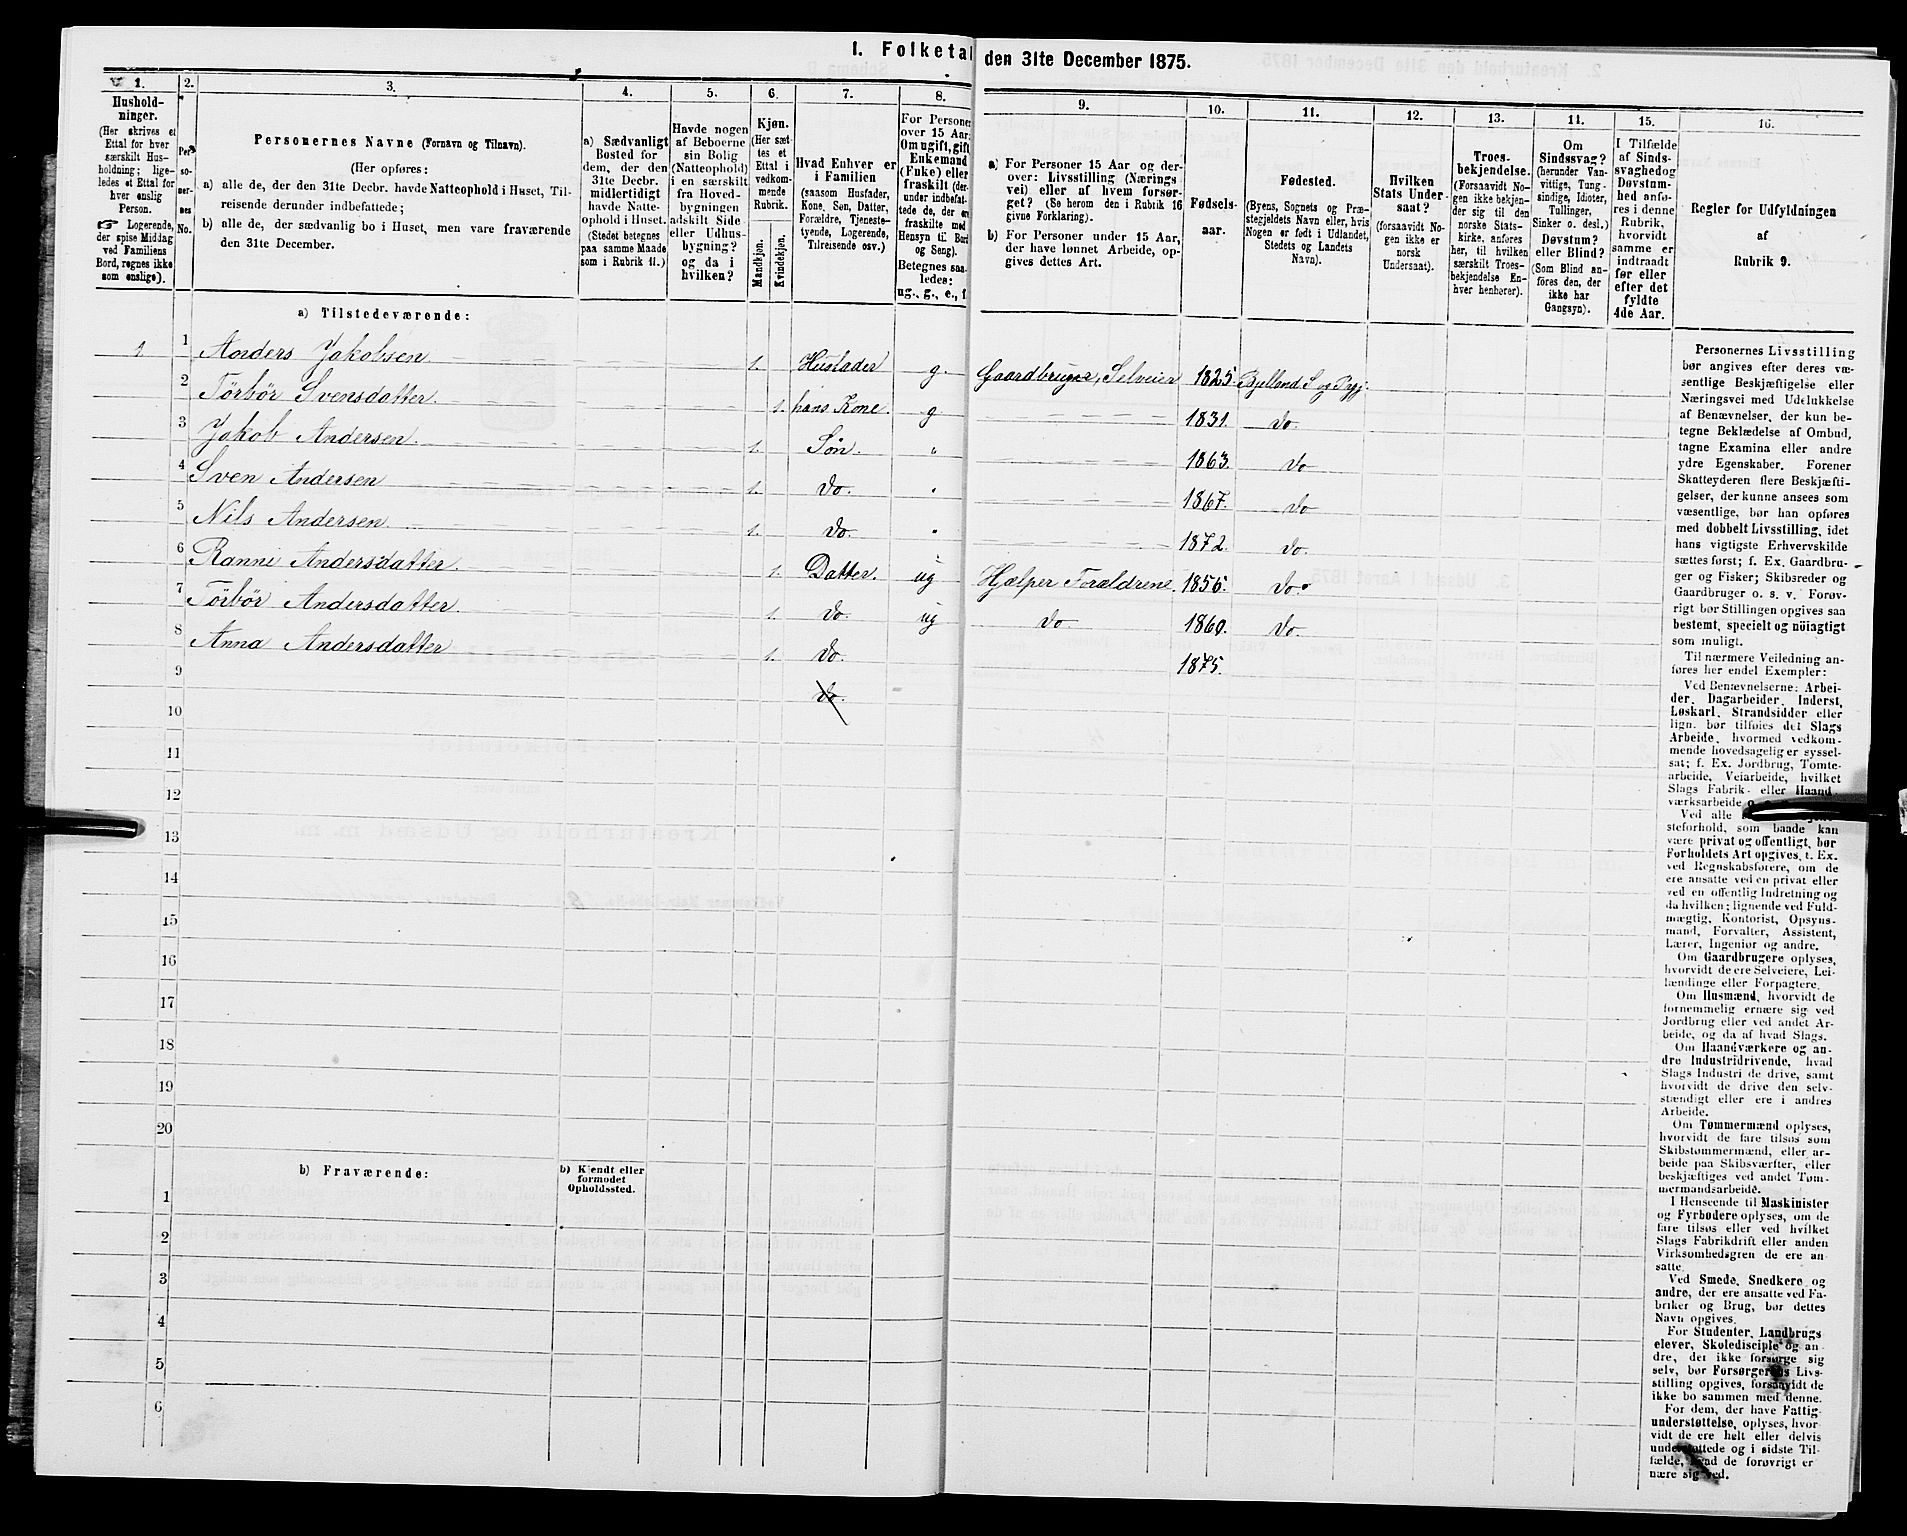 1. Folketal den 31te December 1875.
1.
Hushold-
ninger.
(Her skrives et
Ettal for hver
særskilt Hus-
holdning; lige-
ledes et Ettal for
hver enslig
Person.
Logerende,
der spise Middag
ved Familiens
Bord, regnes ikke
som enslige).
2.
Per-
so-
ner-
nes
No.
3.
Personernes Navne (Fornavn og Tilnavn).
(Her opføres:
a) alle de, der den 31te Decbr. havde Natteophold i Huset, Til-
reisende derunder indbefattede;
b) alle de, der sædvanlig bo i Huset, men vare fraværende
den 31te December.
4.
a) Sædvanligt
Bosted for
dem, der den
31te Decbr.
midlertidigt
havde Natte-
ophold i Huset.
(Stedet betegnes
paa samme Maade
som i Rubrik 11.)
5.
Havde nogen
af Beboerne
sin Bolig
(Natteophold)
i en særskilt
fra Hoved-
bygningen
adskilt Side-
eller Udhus-
bygning?
og da i
hvilken?
6.
Kjøn.
(Her sæt-
tes et
Ettal i
vedkom-
mende
Rubrik.
Mandkjøn.
Kvindekjøn.
7.
Hvad Enhver er
i Familien
(saasom Husfader,
Kone, Søn, Datter,
Forældre, Tjeneste-
tyende, Logerende,
Tilreisende osv.)
8.
For Personer
over 15 Aar:
Om ugift, gift,
Enkemand
(Enke) eller
fraskilt (der-
under indbefat-
tede de, der ere
fraskilte med
Hensyn til Bord
og Seng).
Betegnes saa-
ledes:
ug., g., e., f.
9.
a) For Personer 15 Aar og der-
over: Livsstilling (Nærings-
vei) eller af hvem forsør-
get? (Se herom den i Rubrik 16
givne Forklaring).
b) For Personer under 15 Aar,
der have lønnet Arbeide, op-
gives dettes Art.
10.
Fødsels-
aar.
11.
Fødested.
(Byens, Sognets og Præ-
stegjeldets Navn eller, hvis
Nogen er født i Udlandet,
Stedets og Landets
Navn).
12.
Hvilken
Stats Under-
saat?
(forsaavidt No-
gen ikke er
norsk
Undersaat).
13.
Troes-
bekjendelse.
(Forsaavidt No-
gen ikke bekjen-
der sig til den
norske Stats-
kirke, anføres
her, til hvilken
særskilt Troes-
bekjendelse En-
hver henhører).
14.
Om
Sindssvag?
(herunder Van-
vittige, Tung-
sindige, Idioter,
Tullinger,
Sinker o. desl.)
Døvstum?
eller Blind?
(Som Blind an-
føres den, der
ikke har
Gangsyn).
15.
I Tilfælde
af Sinds-
svaghed og
Døvstum-
hed anfø-
res i denne
Rubrik,
hvorvidt
samme er
indtraadt
før eller
efter det
fyldte
4de Aar.
16.
Regler for Udfyldningen
af
Rubrik 9.
a) Tilstedeværende:
1 1 Anders Jakobsen 1. Husfader g. Gaardbruger, Selveier 1825. Bjelland S og Prgj.
2 Törbör Svensdatter. 1. hans Kone g 1831. do.
3 Jakob Andersen. 1. Søn. " 1863. do
4 Sven Andersen 1. do. " 1867. do
5 Nils Andersen. 1. do. " 1872. do.
6 Ranni Andersdatter. 1. Datter. ug Hjelper Forældrene. 1856. do.
7 Törbör Andersdatter. 1. do. ug do. 1860. do.
8 Anna Andersdatter 1. do. 1875.
9 do.
10
11
12
13
14
15
16
17
18
19
20
b) Fraværende:
b) Kjendt eller
formodet
Opholdssted.
1
2
3
4
5
6
Personernes Livsstilling
bør angives efter deres væ-
sentlige Beskjæftigelse eller
Næringsvei med Udelukkelse
af Benævnelser, der kun be-
tegne Beklædelse af Ombud,
tagne Examina eller andre
ydre Egenskaber. Forener
Skatteyderen flere Beskjæfti-
gelser, der kunne ansees som
væsentlige, bør han opføres
med dobbelt Livsstilling, idet
hans vigtigste Erhvervskilde
sættes først; f. Ex. Gaardbru-
ger og Fisker; Skibsreder og
Gaardbruger o. s. v. Forøv-
rigt bør Stillingen opgives saa
bestemt, specielt og nöiagtigt
som muligt.
Til nærmere Veiledning an-
føres her endel Exempler:
Ved Benævnelserne: Arbei-
der, Dagarbeider, Inderst,
Løskarl, Strandsidder eller
lign. bør tilføies det Slags
Arbeide, hvormed vedkom-
mende hovedsagelig er syssel-
sat; f. Ex. Jordbrug, Tomte-
arbeide, Veiarbeide, hvilket
Slags Fabrik- eller Haand-
værksarbeide
Ved alle
steforhold, som baade kan
være privat og offentligt, bør
Forholdets Art opgives, t. Ex.
ved Regnskabsførere, om de
ere ansatte ved en privat eller
ved en offentlig Indretning og
da hvilken; lignende ved Fuld-
mægtig, Kontorist, Opsyns-
mand, Forvalter, Assistent,
Lærer, Ingeniør og andre.
Om Gaardbrugere oplyses,
hvorvidt de ere Selveiere, Lei-
lændinge eller Forpagtere.
Om Husmænd, hvorvidt de
fornemmelig ernære sig ved
Jordbrug eller ved andet Ar-
beide, og da af hvad Slags.
Om Haandværkere og an-
dre Industridrivende, hvad
Slags Industri de drive, samt
hvorvidt de drive den selv-
stændigt eller ere i andres
Arbeide.
Om Tømmermænd oplyses,
hvorvidt de fare tilsøs som
Skibstømmermænd, eller ar-
beide paa Skibsværfter, eller
beskjæftiges ved andet Tøm-
mermandsarbeide.
I Henseende til Maskinister
og Fyrbødere oplyses, om de
fare tilsøs eller ved hvilket
Slags Fabrikdrift eller anden
Virksomhedsgren de ere an-
satte.
Ved Smede, Snedkere og
andre, der ere ansatte ved Fa-
briker og Brug, bør dettes
Navn opgives.
For Studenter, Landbrugs-
elever, Skoledisciple og an-
dre, der ikke forsørge sig
selv, bør Forsørgerens Livs-
stilling opgives, forsaavidt de
ikke bo sammen med denne.
For dem, der have Fattig-
understøttelse, oplyses, hvor-
vidt de ere helt eller delvis
understøttede og i sidste Til-
fælde, hvad de forøvrigt er-
nære sig ved.